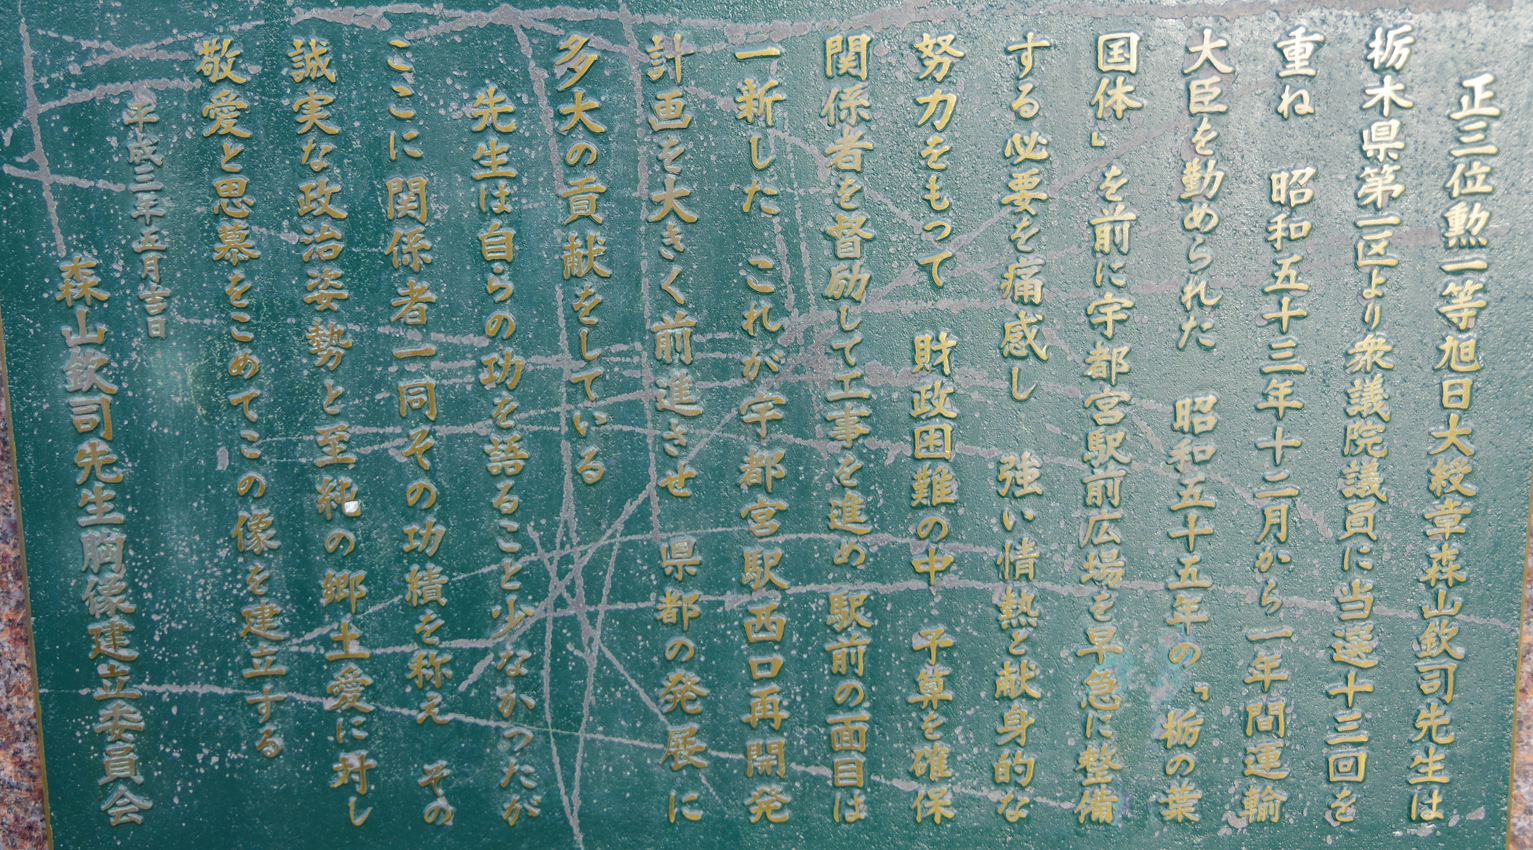 正三位勲一等旭日大綬章森山欽司先生は
栃木県第一区より衆議院議員に当選十三回を
重ね　昭和五十三年十二月から一年間運輸
大臣を勤められた　昭和五十五年の「栃の葉
国体」を前に宇都宮駅前広場を早急に整備
する必要を痛感し　強い情熱と献身的な
努力をもって　財政困難の中　予算を確保
関係者を督励して工事を進め　駅前の面目は
一新した　これが宇都宮駅西口再開発
計画を大きく前進させ　県都の発展に
多大の貢献をしている
先生は自らの功を語ること少なかったが
ここに関係者一同その功績を称え　その
誠実な政治姿勢と至純の郷土愛に対し
敬愛と思慕をこめてこの像を建立する
平成三年五月吉日
森山欽司先生胸像建立委員会